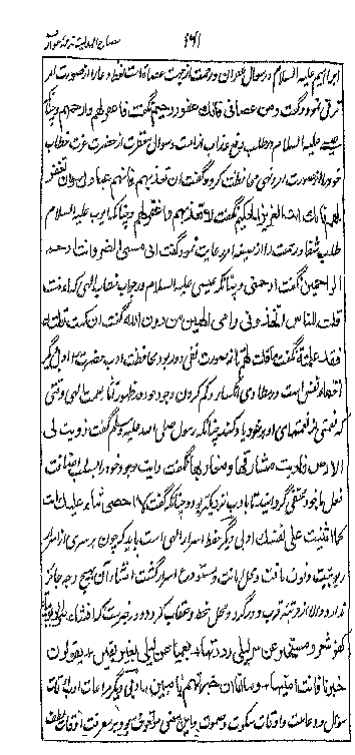 ۱۶۱ مصباح الهدایت ترجمهٔ عوارف
ابراهیم علیه السلام در سوال غفران و رحمت از جهت عصاة است لفظ دعا را از صورت امر
ترقی نمود و گفت ومن عصانی فانک غفور رحیم نگفت فاغفر لهم وارحمهم و چنانکه
عیسی علیه السلام در طلب دفع عذاب امت و سوال مغفرت از حضرت عزت خطاب
خود را از صورت امر و نهی محافظت کرد و گفت ان تعذبهم فانهم عبادک وان تغفر
لهم فانک انت العزیز الحکیم نگفت لا تعذبهم واغفر لهم و چنانکه ایوب علیه السلام
طلب شفا و رحمت را از صیغه امر رعایت نمود گفت انی مسنی الضر وانت ارحم
الراحمین نگفت ارحمنی و چنانکه عیسی علیه السلام در جواب خطاب الهی که ءانت
قلت للناس اتخذونی وامی الهین من دون الله گفت ان کنت قلته
فقد علمته نگفت ما قلت لهم تا از صورت نفی دور بود و محافظت ادب حضرت ادبی دیگر
اخفاء نفس است در مطاوی انکسار و گم کردن وجود خود در ظهور آثار نعمت الهی وقتی
که نعمتی از نعمتهای او بر خود یاد کند چنانکه رسول صلی الله علیه وسلم گفت زویت لی
الارض فاریت مشارقها ومغاربها نگفت رایت وجود خود را باضافت
فعل با خود مختفی گردانید تا بادب نزدیکتر بود و چنانکه گفت لا احصی ثناء علیک انت
کما اثنیت علی نفسک ادبی دیگر حفظ اسرار الهی است باید که چون بر سری از اسرار
ربوبیت وقوف یافت و محل امانت و مستودع اسرار گشت افشاء آن بهیچ وجه جائز
ندارد والا از مرتبه قرب دور گردد و محل سخط و عقاب گردد و در خبرست که افشاء
کفر شعر ومستخبر عن سر لیلی رددتها بعمیاء عن لیلی بغیر یقین یقولون
خبرنا فانت امینها وما انا ان خبرتهم بامین ادبی دیگر مراعات اوقات
سؤال و دعاست و اوقات سکوت و صموت و این معنی موقوف بود بر معرفت اوقات لطف